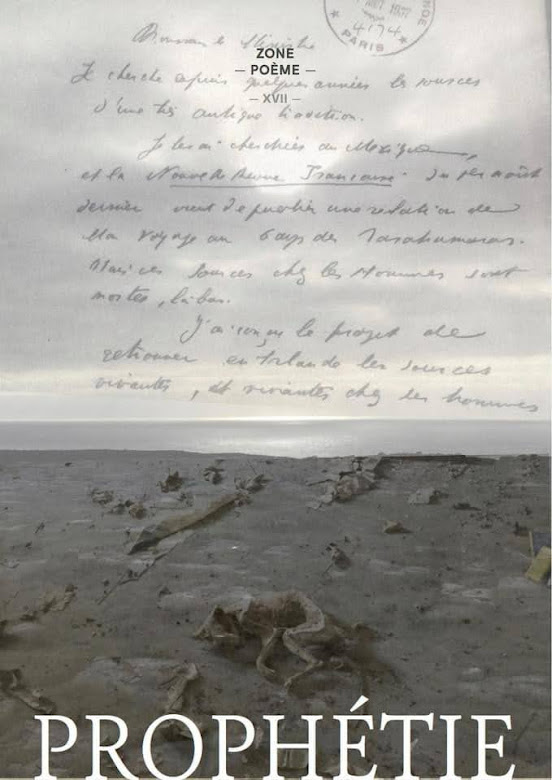 1937
4174
PARIS
Monsieur le Ministre
ZONE
— POÈME —
— XVII —
Je cherche depuis quelques années les sources
d'une très antique tradition.
Je les ai cherchées au Mexique,
et la Nouvelle Revue Française du 1er août
dernier vient de publier une relation de
Mon Voyage au Pays des Tarahumaras.
Mais ces sources chez les Hommes sont
mortes, là-bas.
J'ai conçu le projet de
retrouver en Irlande les sources
vivantes, et vivantes chez des hommes
PROPHÉTIE